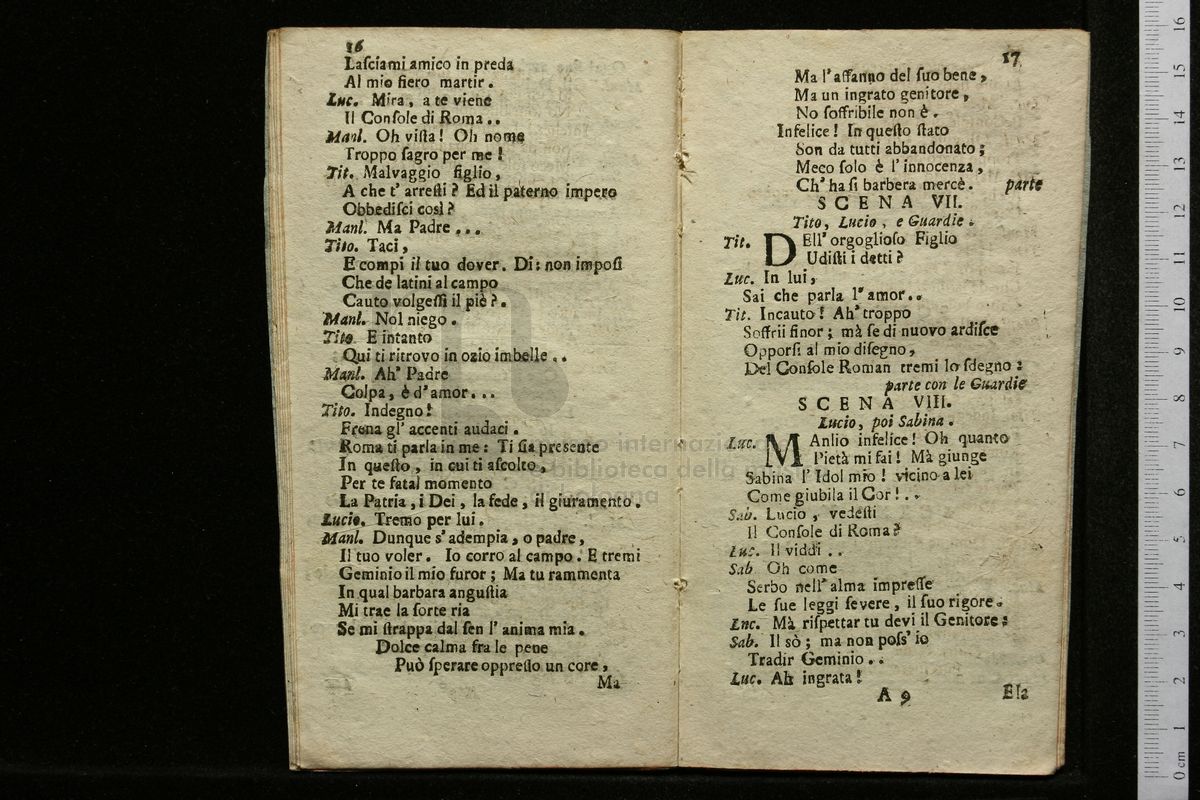 16
Laſciami amico in preda
Al mio fiero martir.
Luc. Mira, a te viene
Il Conſole di Roma..
Manl. Oh viſta! Oh nome
Troppo ſagro per me!
Tit. Malvaggio figlio,
A che t' arreſti? Ed il paterno impero
Obbediſci così?
Manl. Ma Padre...
Tito. Taci,
E compi il tuo dover. Di: non impoſi
Che de latini al campo
Cauto volgeſſi il piè?.
Manl. Nol niego.
Tito E intanto
Qui ti ritrovo in ozio imbelle..
Manl. Ah' Padre
Colpa, è d'amor...
Tito. Indegno!
Frena gl' accenti audaci.
Roma ti parla in me: Ti ſia preſente
In queſto, in cui ti aſcolto,
Per te fatal momento
La Patria, i Dei, la fede, il giuramento.
Lucio. Tremo per lui.
Manl. Dunque s'adempia, o padre,
Il tuo voler. Io corro al campo. E tremi
Geminio il mio furor; Ma tu rammenta
In qual barbara anguſtia
Mi trae la ſorte ria
Se mi ſtrappa dal ſen l' anima mia.
Dolce calma fra le pene
Può ſperare oppreſſo un core,
Ma
17
Ma l'affanno del ſuo bene,
Ma un ingrato genitore,
No ſoffribile non è.
Infelice! In queſto ſtato
Son da tutti abbandonato;
Meco ſolo è l'innocenza,
Ch' ha ſi barbera mercè. parte
SCENA VII.
Tito, Lucio, e Guardie.
Tit. DEll' orgoglioſo Figlio
Udiſti i detti?
Luc. In lui,
Sai che parla l'amor..
Tit. Incauto! Ah' troppo
Soffrii finor; mà ſe di nuovo ardiſce
Opporſi al mio diſegno,
Del Conſole Roman tremi lo ſdegno:
parte con le Guardie
SCENA VIII.
Lucio, poi Sabina.
Luc. MAnlio infelice! Oh quanto
Pietà mi fai! Mà giunge
Sabina l'Idol mio! vicino a lei
Come giubila il Cor!..
Sab. Lucio, vedeſti
Il Conſole di Roma?
Luc. Il viddi..
Sab Oh come
Serbo nell' alma impreſſe
Le ſue leggi ſevere, il ſuo rigore.
Lnc. Mà riſpettar tu devi il Genitore:
Sab. Il sò; ma non poſs' io
Tradir Geminio..
Luc. Ah ingrata!
A 9 Ela